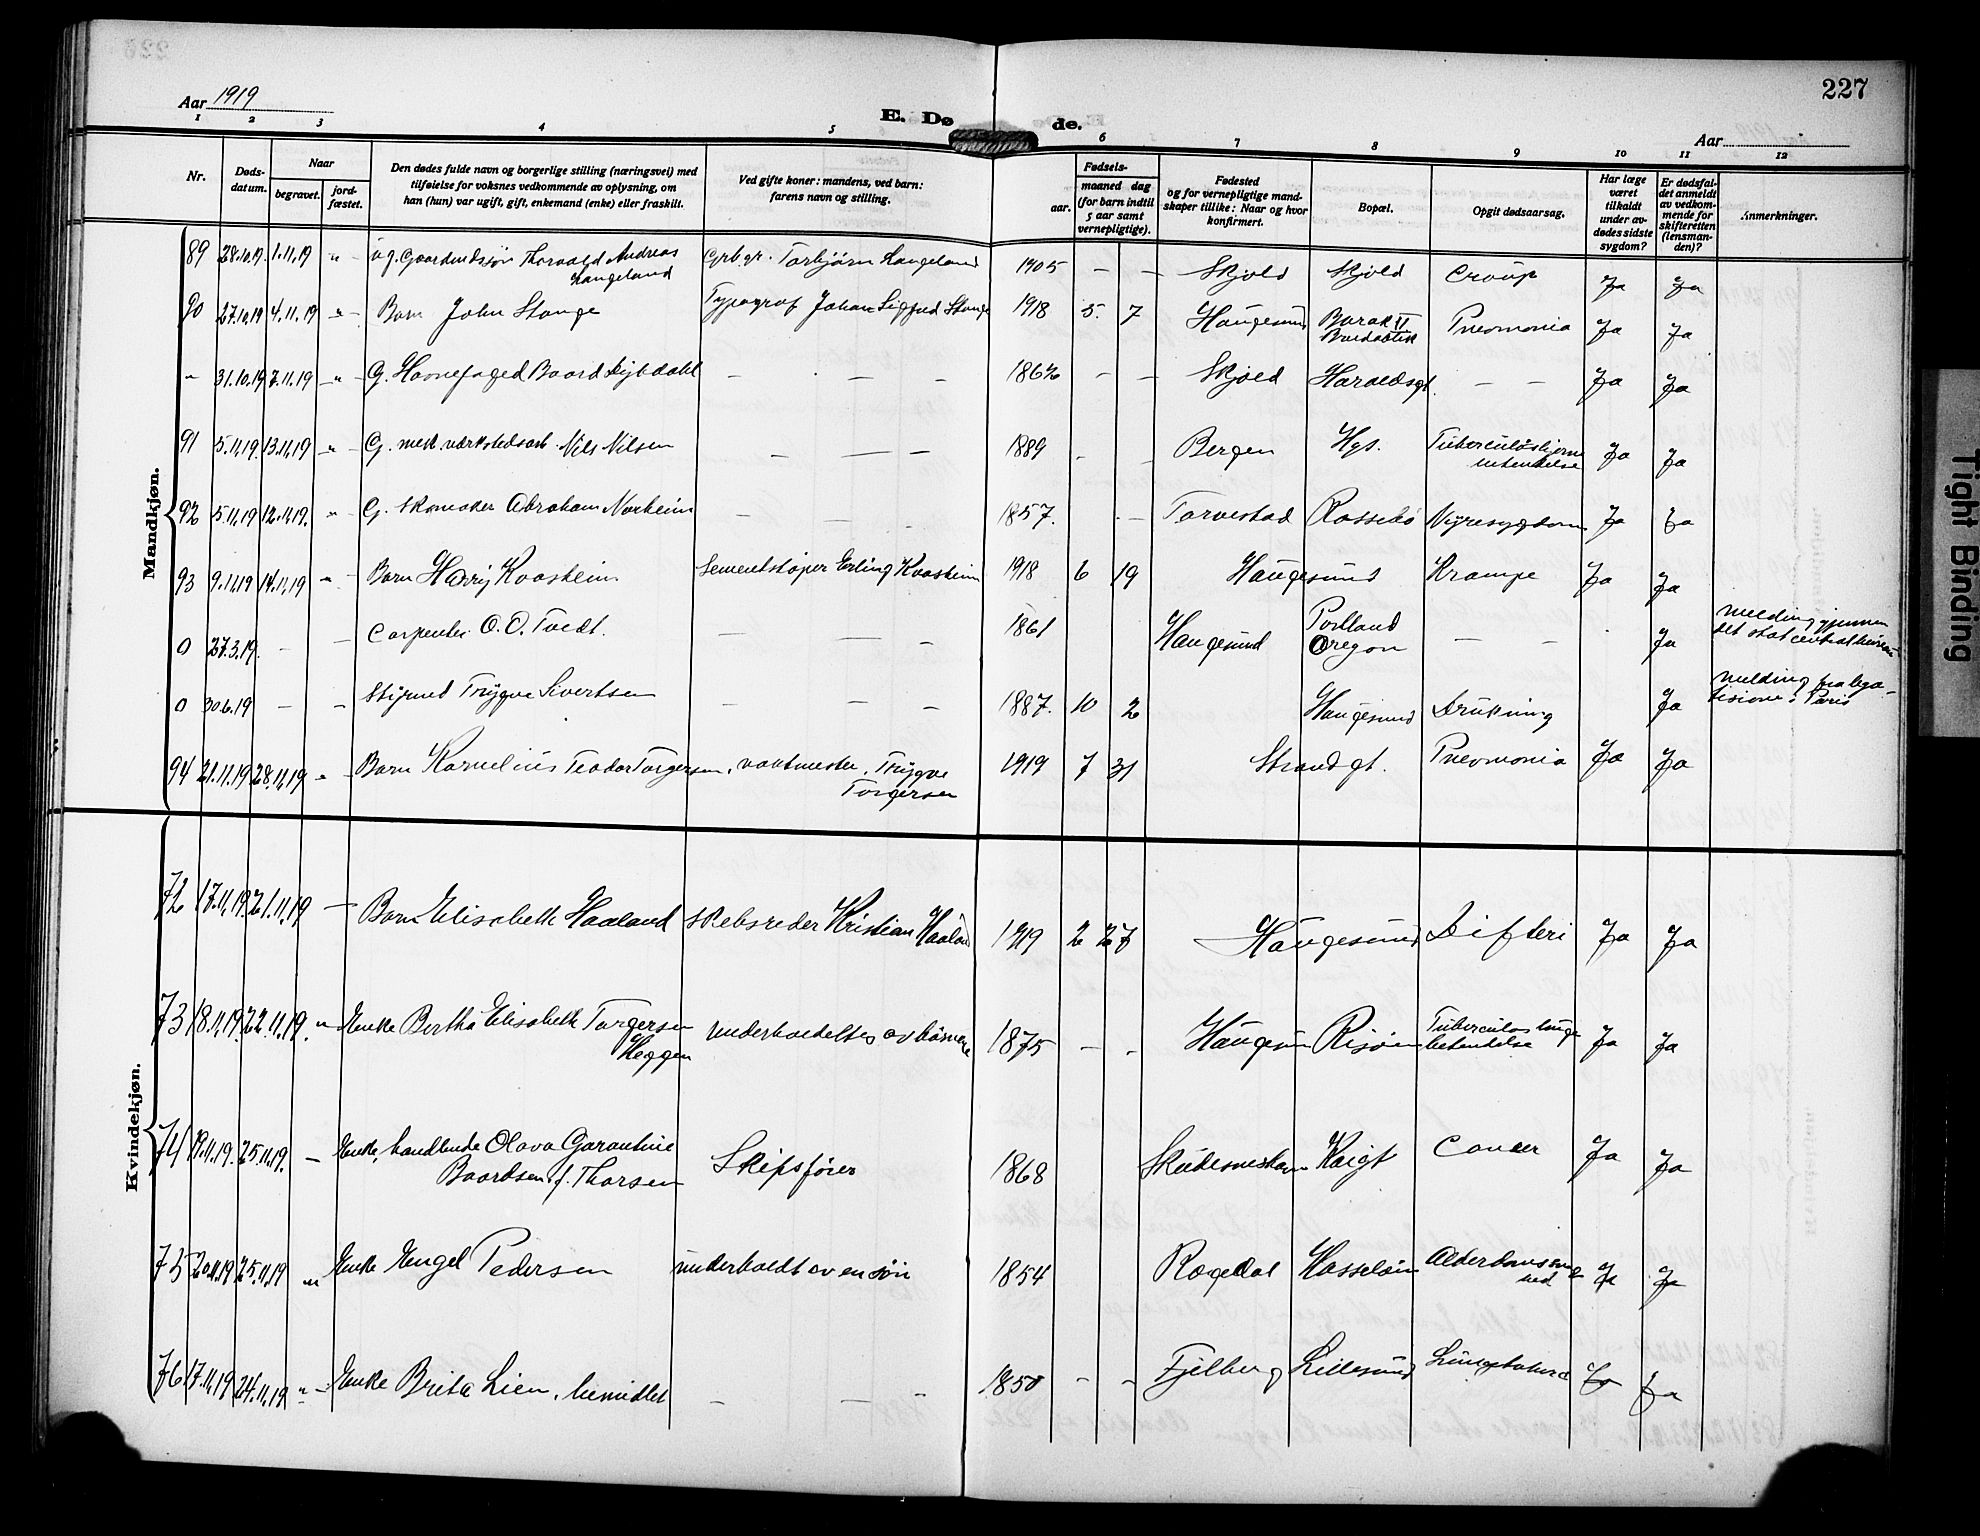 227
Aar 1919
E. Dø de.
Aar
1 2 3 4 5 6 7 8 9 10 11 12
Nr.
Døds-
datum.
Naar
begravet.
jord-
fæstet.
Den dødes fulde navn og borgerlige stilling (næringsvei) med
tilføielse for voksnes vedkommende av oplysning, om
han (hun) var ugift, gift, enkemand (enke) eller fraskilt.
Ved gifte koner: mandens, ved barn:
farens navn og stilling.
Fødsels-
aar.
maaned dag
(for barn indtil
5 aar samt
vernepligtige).
Fødested
og for vernepligtige mand-
skaper tillike: Naar og hvor
konfirmert.
Bopæl.
Opgit dødsaarsag.
Har læge
været
tilkaldt
under av-
dødes sidste
sygdom?
Er dødsfal-
det anmeldt
av vedkom-
mende for
skifteretten
(lensman-
den)?
Anmerkninger.
Mandkjøn.
89 28.10.19. 1.11.19 " - ug. Gaardmdssøn Thorvald Andreas Grbgr. Torbjørn Langeland 1905 - - Skjold Skjold Croup Ja Ja
Langeland
90 27.10.19 4.11.19 " - Barn John Stange Typograf Johan Sigfred Stange 1918 5. 7 Haugesund Barak II Pneomonia Ja Ja
" 31.10.19 7.11.19 - " - G. Havnefoged Baard Dybdahl - - - 1862 - - Skjold Haraldsgt. - - Ja Ja
91 5.11.19. 13.11.19 " - G. mek. værkstedsarb. Nils Nilsen - - - 1889 - - Bergen Hgs. Ja Ja
92 5.11.19 12.11.19. " - G. Skomaker Abraham Norheim - - - 1857. - - Torvestad Rossebø Nyresygdom Ja Ja
93 9.11.19 14.11.19 " - Barn Harry Kvasheim Sementstøper Erling Kvasheim 1918 6 19 Haugesund Krampe Ja Ja
0 27.3.19. - - Carpenter O. O. Tvedt. - - - 1861 Haugesund Portland - - Ja melding gjennem
Oregon det stat.
0 30.6.19 - - Styrmd Trygve Sivertsen - - - 1887. 10 2 Haugesund Drukning Ja melding fra lega-
tionen i Paris
94 21.11.19 28.11.19 " - Barn Kornelius Teodor Torgersen, vaktmester, Trygve 1919 7 31 Strandgt. Pneomonia Ja Ja
Torgersen
Kvindekjøn.
72 17.11.19. 21.11.19 - Barn Elisabeth Haaland Skibsreder Kristian Haaland 1919 2 27 Haugesund Difteri Ja Ja
73 18.11.19. 22.11.19. " Enke Bertha Elisabeth Torgersen underholdeltes av børnene 1875 - - Haugesun Risøen Tuberculos lunge Ja Ja
Heggen betendelse
74 19.11.19. 25.11.19. - Enke, handlende Olava Garantine Skipsfører 1868 Skudesneshavn Kaigt Cancer Ja Ja
Baardsen f. Thorsen
75 20.11.19 25.11.19 " Enke Engel Pedersen underholdt av en søn 1854 Røgedal Hasseløen Alderdoms Ja Ja
76 17.11.19 24.11.19 " - Enke Brita Lien, bemidlet - - - 1850 - - Fjelberg Lillesund Ja Ja
Tight Binding